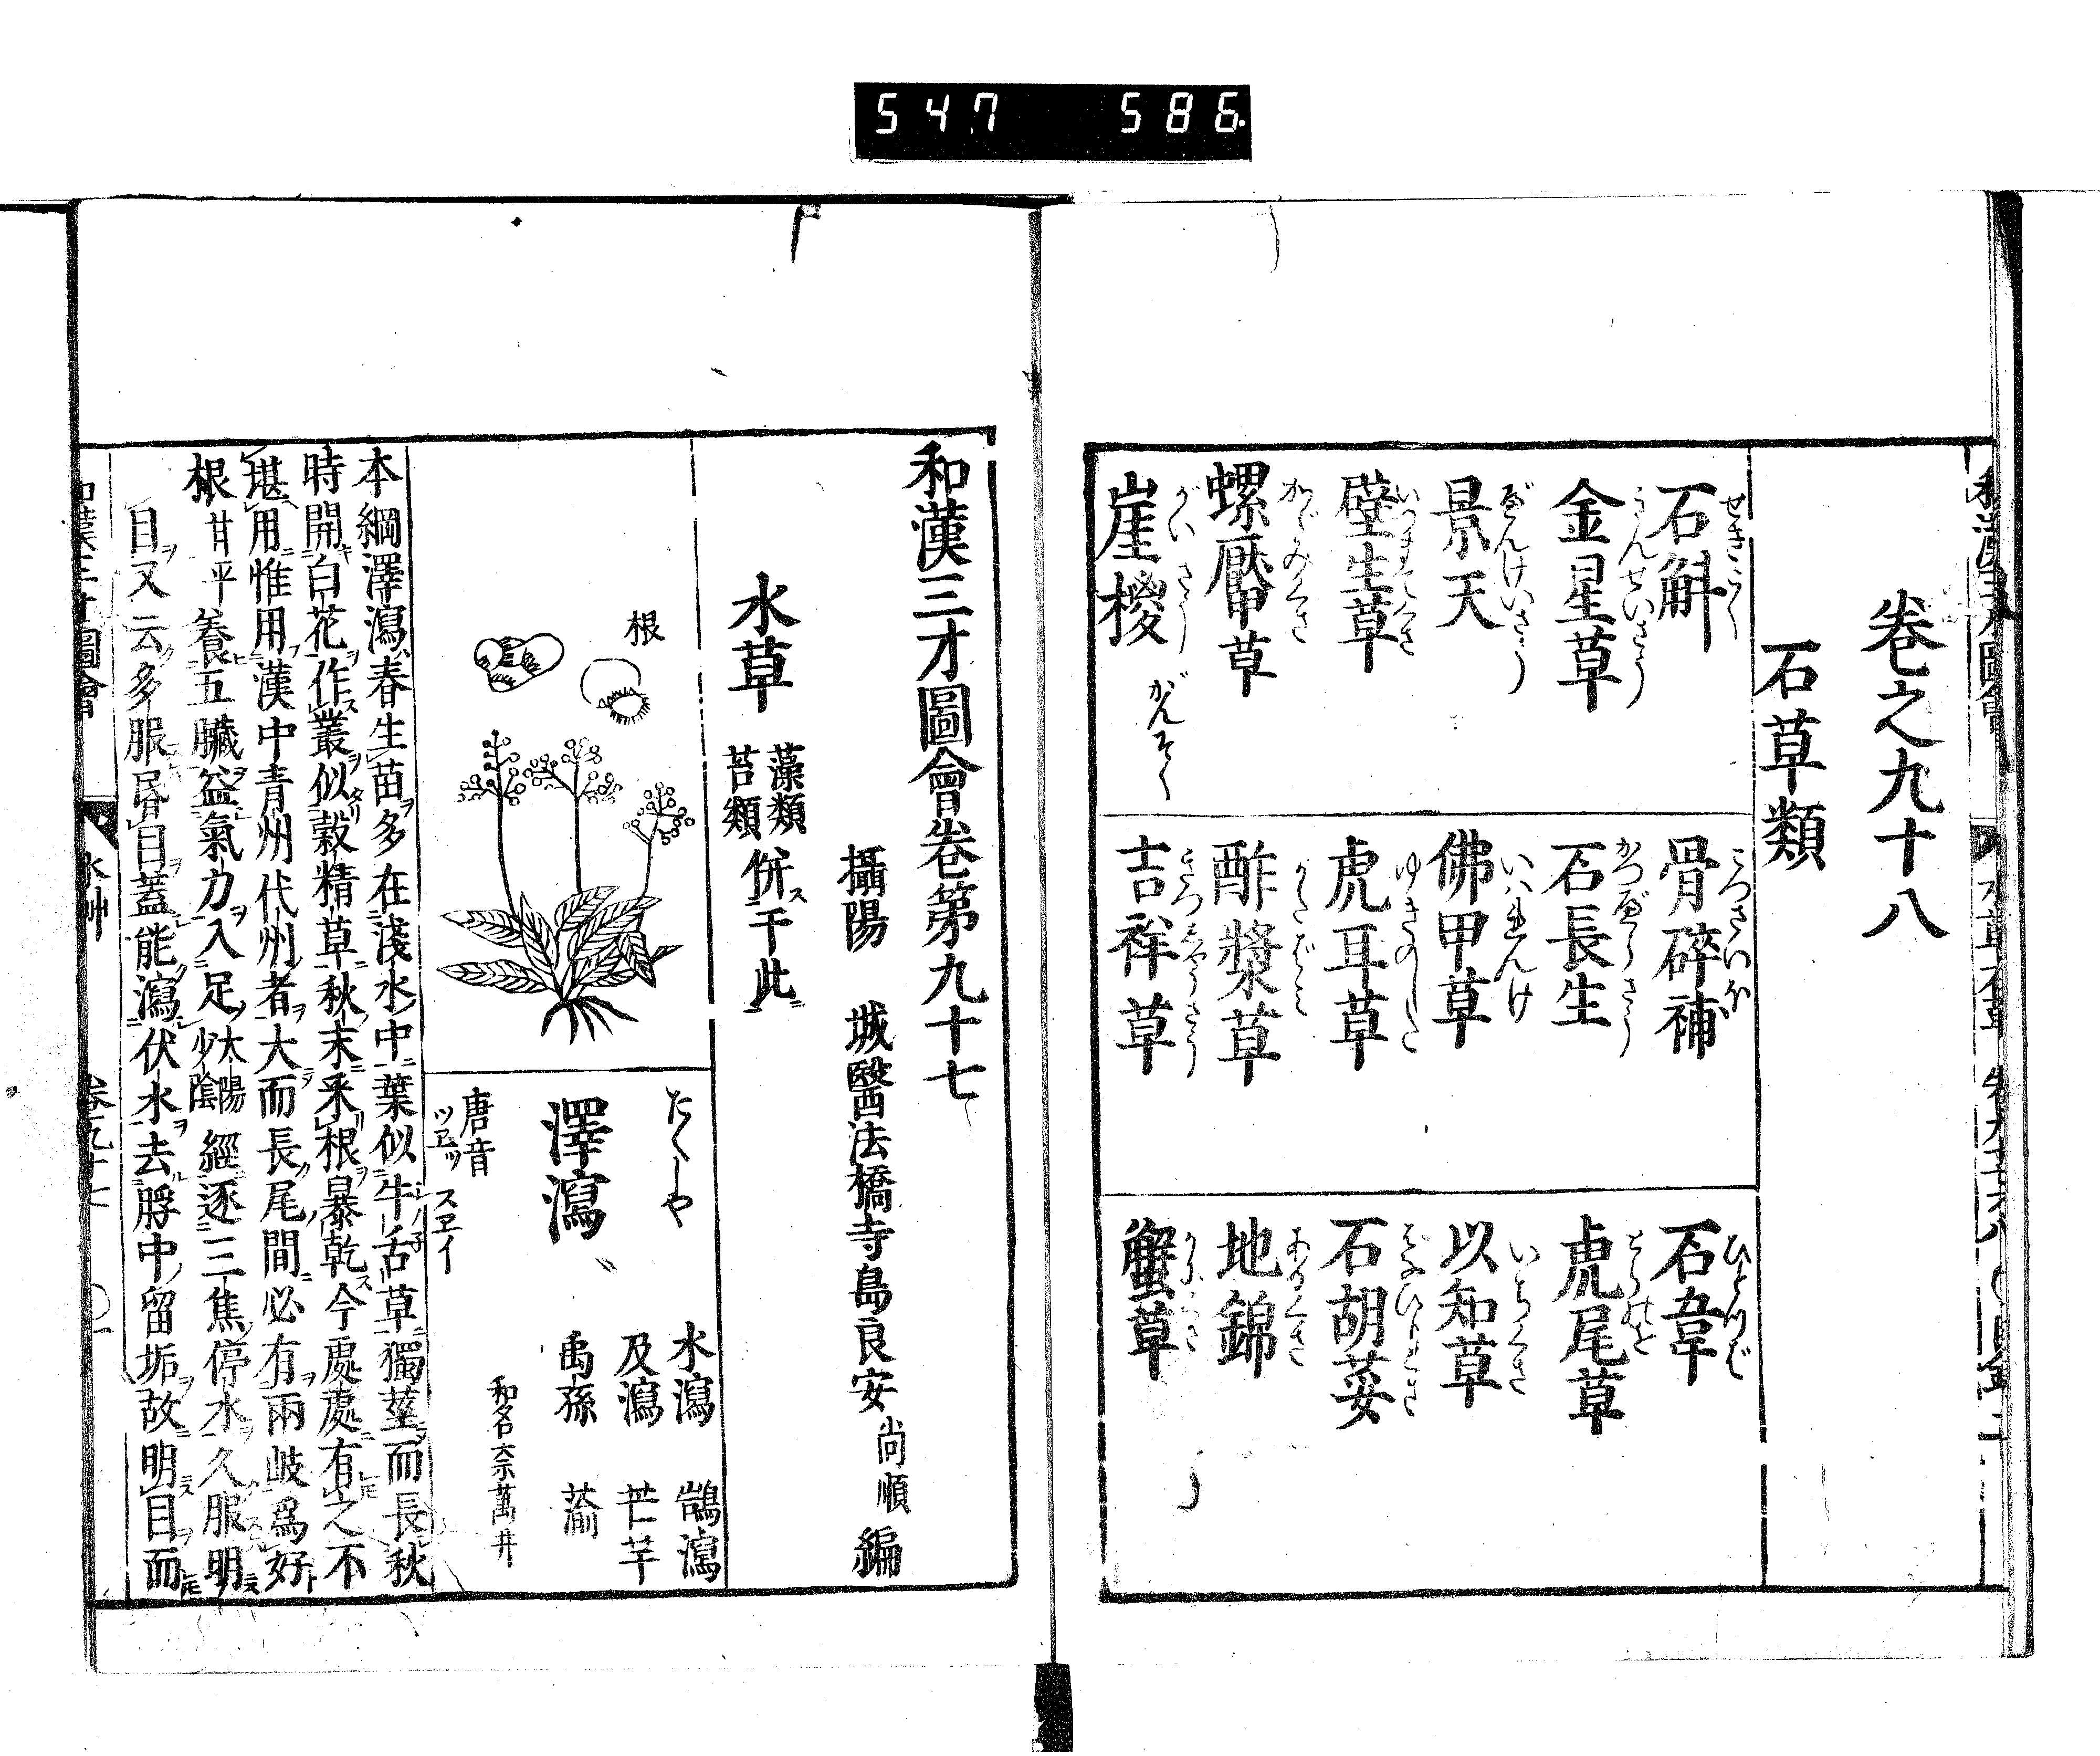 547 586
卷之九十八
石草類
石斛 せきこく
骨碎補 こつさいほ
石韋 ひとつば
金星草 きんせいさう
石長生 かつべらさう
虎尾草 とらのを
景天 げんけいさう
佛甲草 いはれんげ
以知草 いちくさ
壁生草 いつまでくさ
虎耳草 ゆきのした
石胡荽 はなひりくさ
螺厴草 かがみくさ
酢漿草 かたばみ
地錦 あかくさ
崖椶 がいさう がんそく
吉祥草 きつしやうさう
蟹草 かにくさ
和漢三才圖會卷第九十七
攝陽 城醫法橋寺島良安尚順 編
水草 藻類 苔類 併ス于此ニ
根
たくしや
澤瀉
唐音 ツヱッ スヱイ
水瀉 鵠瀉
及瀉 芒芋
禹孫 蕍
和名奈萬井
本綱澤瀉春生苗多在淺水中葉似牛舌草獨莖而長秋
時開白花作叢似穀精草秋末采根暴乾今處處有之不
堪用惟用漢中青州代州者大而長尾間必有兩歧爲好
根 甘平 養五臟益氣力入足太陽少陰經逐三焦停水久服明
目又云多服昏目蓋能瀉伏水去脬中留垢故明目而
和漢三才圖會 水艸 卷九十七 〇一